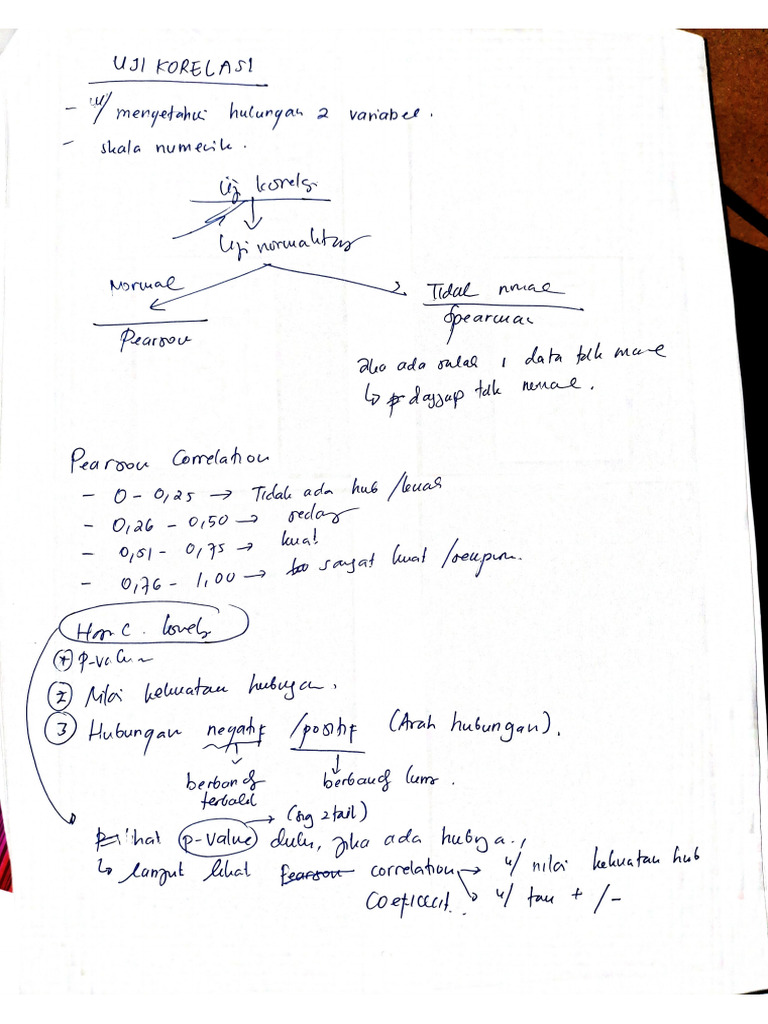 UJI KORELASI
- u/ mengetahui hubungan 2 variabel.
- skala numerik.
Uji korelasi
Uji normalitas
Normal
Tidak normal
Pearson
Spearman
jika ada salah 1 data tdk normal
↳ dianggap tdk normal.
Pearson Correlation
- 0 - 0,25 → Tidak ada hub / lemah
- 0,26 - 0,50 → sedang
- 0,51 - 0,75 → kuat
- 0,76 - 1,00 → sangat kuat / sempurna.
korelasi
① p-value
② Nilai kekuatan hubungan.
③ Hubungan negatif / positif (Arah hubungan).
berbanding terbalik
berbanding lurus.
(sig 2 tail)
lihat p-value dulu, jika ada hubungan,
↳ lanjut lihat Pearson correlation → u/ nilai kekuatan hub
Coeficient. → u/ tau + / -